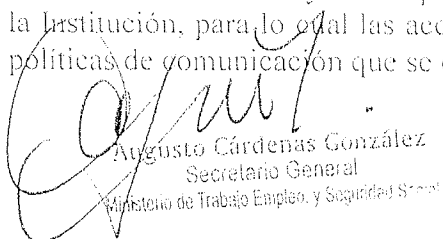 la Institución, para lo cual las acc
políticas de comunicación que se
Augusto Cárdenas González
Secretario General
Ministerio de Trabajo Empleo, y Seguridad Social